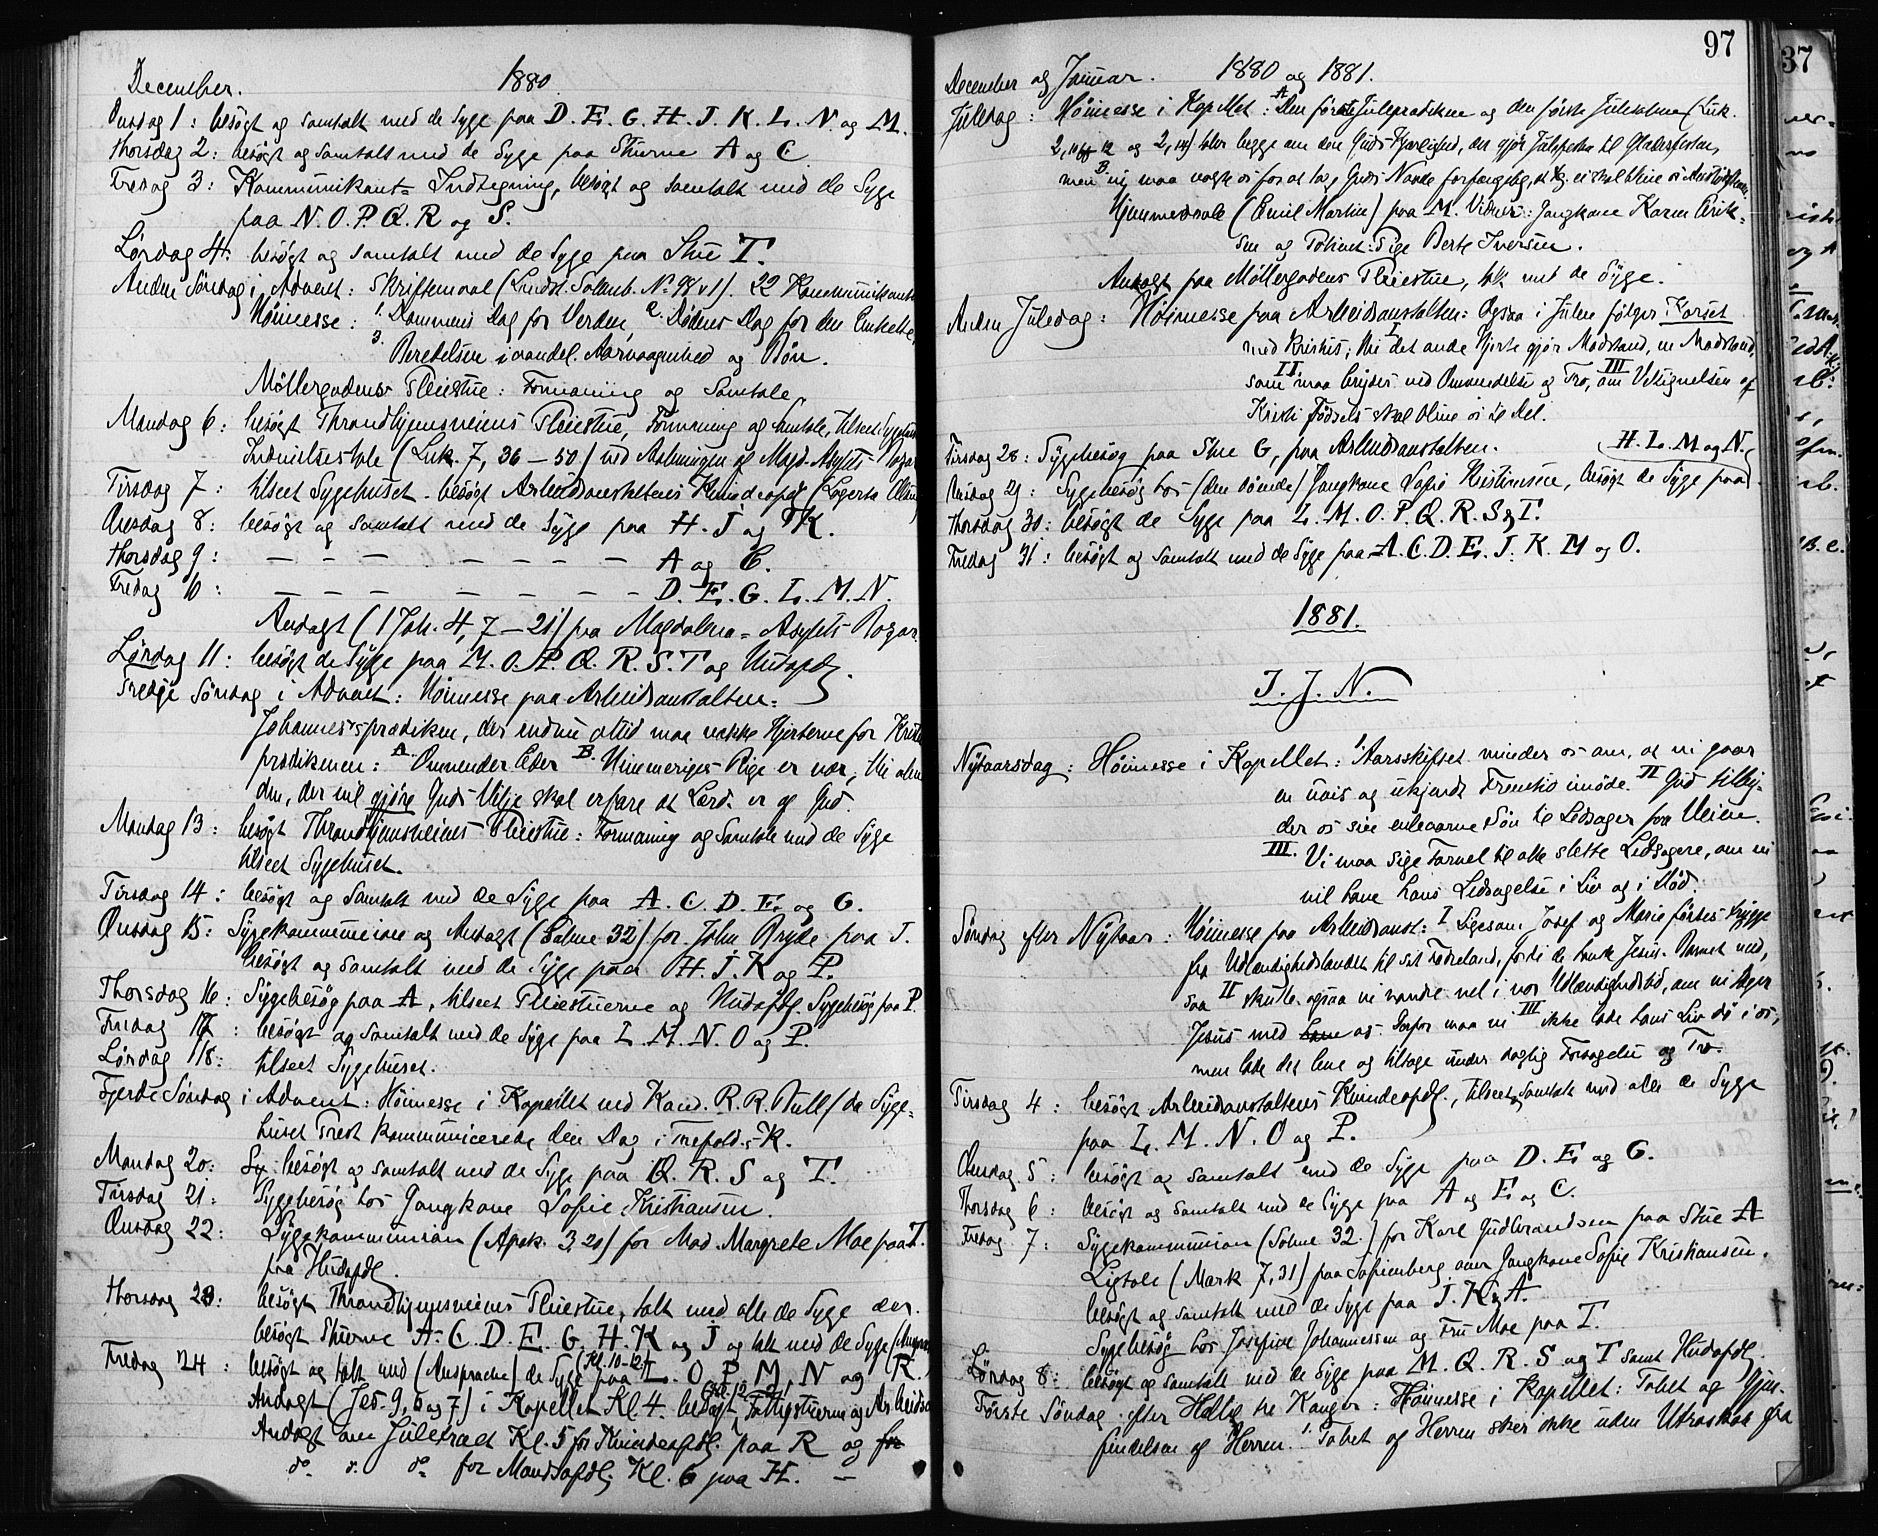 December. 1880
Onsdag 1: besøgt og samtalt med de Syge paa D. E. G. H. J. K. L. N. og M.
Thorsdag 2: besøgt og samtalt med de Syge paa Stuerne A og C.
Fredag 3: Kommunikant= Indtegning, besøgt og samtalt med de Syge
paa N. O. P. Q. R og S.
Lørdag 4: besøgt og samtalt med de Syge paa Stue T.
Anden Søndag i Advent: Skriftemaal (Landst. Salmb. No 98 v 1). 22 Kommunikanter
Høimesse: 1. Dommens Dag for Verden, 2. Dødens Dag for den Enkelte,
3. Beredelsen i aandel. Aarvaagenhed og Bøn.
Møllergadens Pleiestue: Formaning og Samtale
Mandag 6: besøgt Throndhjemsveiens Pleiestue, Formaning og Samtale, tilseet Sygehuset
Indvielsestale (Luk. 7, 36–50) ved Aabningen af Magd. Asylets
Tirsdag 7: tilseet Sygehuset. besøgt Arbeidsanstaltens Kvindeafdl (Lagerta Olsen)
Onsdag 8: besøgt og samtalt med de Syge paa H. J og K.
Thorsdag 9: – – – – – – – A og C.
Fredag 10: – – – – – – – D. E. G. L. M. N.
Andagt (1 Joh. 4, 7–21) paa Magdalena= Asylets
Lørdag 11: besøgt de Syge paa M. O. P. Q. R. S. T og Hudafdl.
Tredje Søndag i Advent: Høimesse paa Arbeidsanstalten:
Johannesprædiken, der endnu altid maa vække Hjerterne for Kristi
prædikenen: A. Omvender Eder B. Himmeriges Rige er nær, thi alene
den, der vil gjøre Guds Vilje skal erfare at Lærd. er af Gud.
Mandag 13: besøgt Throndhjemsveiens Pleiestue: Formaning og Samtale med de Syge
tilseet Sygehuset.
Tirsdag 14: besøgt og samtalt med de Syge paa A. C. D. E. og G.
Onsdag 15: Sygekommunion og Andagt (Salme 32) for John Bryde paa J.
besøgt og samtalt med de Syge paa H. J. K og P.
Thorsdag 16: Sygebesøg paa A, tilseet Pleiestuerne og Hudafdl. Sygebesøg paa P.
Fredag 17: besøgt og samtalt med de Syge paa L. M. N. O og P.
Lørdag 18: tilseet Sygehuset.
Fjerde Søndag i Advent: Høimesse i Kapellet ved Kand. R. R. Bull (da Syge=
huset Prest kommunicerede den Dag i Trefold.= K.
Mandag 20: Sy besøgt og samtalt med de Syge paa Q. R. S og T.
Tirsdag 21: Sygebesøg hos Jongkone Sofie Kristiansen.
Onsdag 22: Sygekommunion (Apok. 3, 20) for Mad. Margrete Moe paa T.
paa Hudafdl.
Thorsdag 23: besøgt Throndhjemsveiens Pleiestue, talt med alle de Syge der.
besøgt Stuerne A. C. D. E. G. H. K og J og talt med de Syge
Fredag 24: besøgt og talt med (Ansprache) de Syge (Kl. 10–12) paa L. O. P. M. N og R.
Andagt (Jes. 9, 6 og 7) i Kapellet Kl. 4. besøgt Fattigstuerne og Arbeids
Andagt om Juletræet Kl. 5 for Kvindeafdl. paa R og for
do. do. do. for Mandsafdl. Kl. 6 paa H. –
97
December og Januar. 1880 og 1881.
Juledag: Høimesse i Kapellet: A. Den første Juleprædiken og den første Julesalme (Luk.
2, 10-12 og 2, 14) blev begge om den Guds Kjærlighed, der gjør Julefesten til Glædesfesten,
men B. vi maa vogte os for at tage Guds Naade forfængelig,
Hjemmedaab (Emil Martin) paa M. Vidner: Jongkone Karen Erik=
sen og Pige Berte Iversen.
Andagt paa Møllergadens Pleiestue, talt med de Syge.
Anden Juledag: Høimesse paa Arbeidsanstalten: Ogsaa i Julen følger Korset
med Kristus; thi I det onde Hjerte gjør Modstand, en Modstand,
II som maa brydes ved Omvendelse og Tro, III om Velsignelsen af
Kristi Fødsel skal blive os til Del.
Tirsdag 28: Sygebesøg paa Stue G, paa Arbeidsanstalten. H. L. M og N.
Onsdag 29: Sygebesøg hos (den døende) Jongkone Sofie Kristiansen, besøgt de Syge paa
Thorsdag 30: besøgt de Syge paa L. M. O. P. Q. R. S & T.
Fredag 31: besøgt og samtalt med de Syge paa A. C. D. E. J. K. M og O.
1881.
I. J. N.
Nytaarsdag: Høimesse i Kapellet: I. Aarsskiftet minder os om, at vi gaar
en uvis og ukjendt Fremtid imøde. II Gud tilby=
der os sin enbaarne Søn til Ledsager paa Veien.
III. Vi maa sige Farvel til alle slette Ledsagere, om vi
vil have hans Ledsagelse i Liv og i Død.
Søndag efter Nytaar: Høimesse paa Arbeidsanst: I Ligesom Josef og Marie førtes trygge
fra Udlændighedslandet til sit Fødreland, fordi de havde Jesus-Barnet med,
saa II skulle ogsaa vi vandre vel i vor Udlændighedstid, om vi tager
Jesus med os. Derfor maa vi III ikke lade hans Liv dø i os,
men lade det leve og tiltage under daglig Forsagelse og Tro.
Tirsdag 4: besøgt Arbeidsanstaltens Kvindeafdl., tilseet, samtalt med alle de Syge
paa L. M. N. O og P.
Onsdag 5: besøgt og samtalt med de Syge paa D. E og G.
Thorsdag 6: besøgt og samtalt med de Syge paa A og E og C.
Fredag 7: Sygekommunion (Salme 32.) for Karl Gudbrandsen paa Stue A
Ligtale (Mark 7, 31) paa Sofienberg over Jongkone Sofie Kristiansen.
besøgt og samtalt med de Syge paa J. K & A.
Sygebesøg hos Josefine Johannessen og Fru Moe paa T.
Lørdag 8: besøgt og samtalt med de Syge paa M. Q. R. S og T samt Hudafdl.
Første Søndag efter Hellig tre Konger: Høimesse i Kapellet: Tabet og Gjen=
findelsen af Herren. 1. Tabet af Herren sker ikke uden Utroskab fra
37